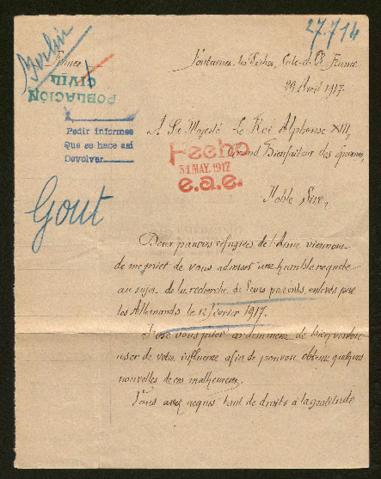 27.714
Berlin
POBLACIÓN
CIVIL
Fontaines les Sèches, Côte-d'Or, France
29 Avril 1917
Pedir informes
Que se hace así
Devolver
A Sa Majesté Le Roi Alphonse XIII,
Grand Bienfaiteur des
Hecho
31 MAY. 1917
e.a.e.
Noble Sire,
Gout
Deux pauvres réfugiés de l'Aisne viennent
de vous adresser une humble requête
au sujet de la recherche de leurs parents, enlevés par
les Allemands le 12 février 1917.
J'ose vous prier de bien vouloir
user de votre influence afin de pouvoir obtenir quelques
nouvelles de ces malheureux.
Vous avez acquis tant de droits à la gratitude